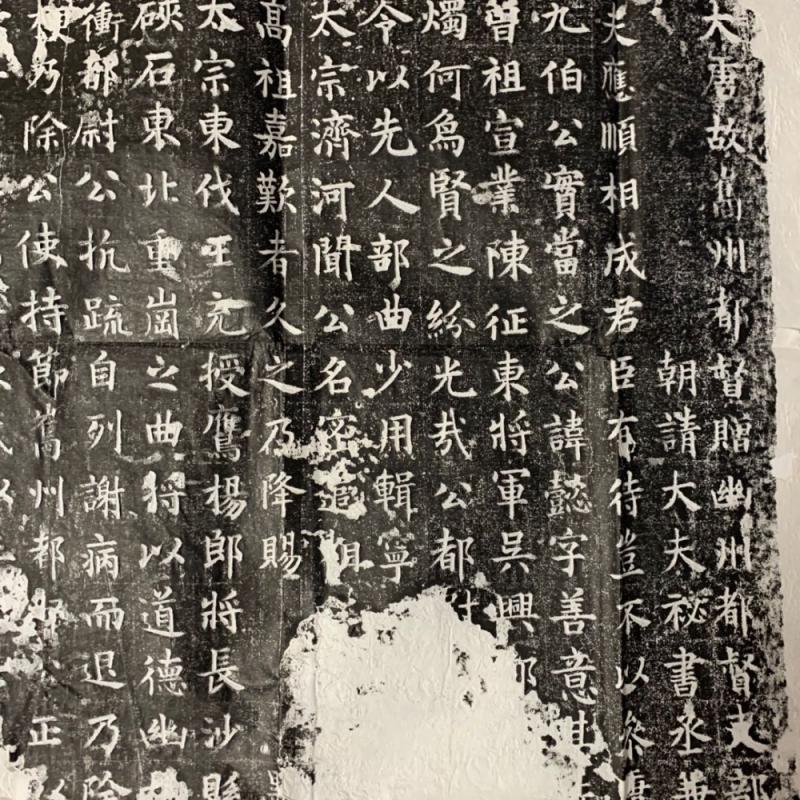 大唐故嶲州都督贈幽州都督吏部
朝請大夫祕書丞兼
夫應順相成君臣有待豈不以
九伯公實當之公諱懿字善意其
曾祖宣業陳征東將軍吳興郡
燭何為賢之紛光哉公都
令以先人部曲少用輯寧
太宗濟河聞公名密追
高祖嘉歎者久之乃降賜
太宗東伐王充授鷹楊郎將長沙縣
硤石東北重崗之曲將以道德幽
衝都尉公抗疏自列謝病而退乃除
乃除公使持節嶲州都 正